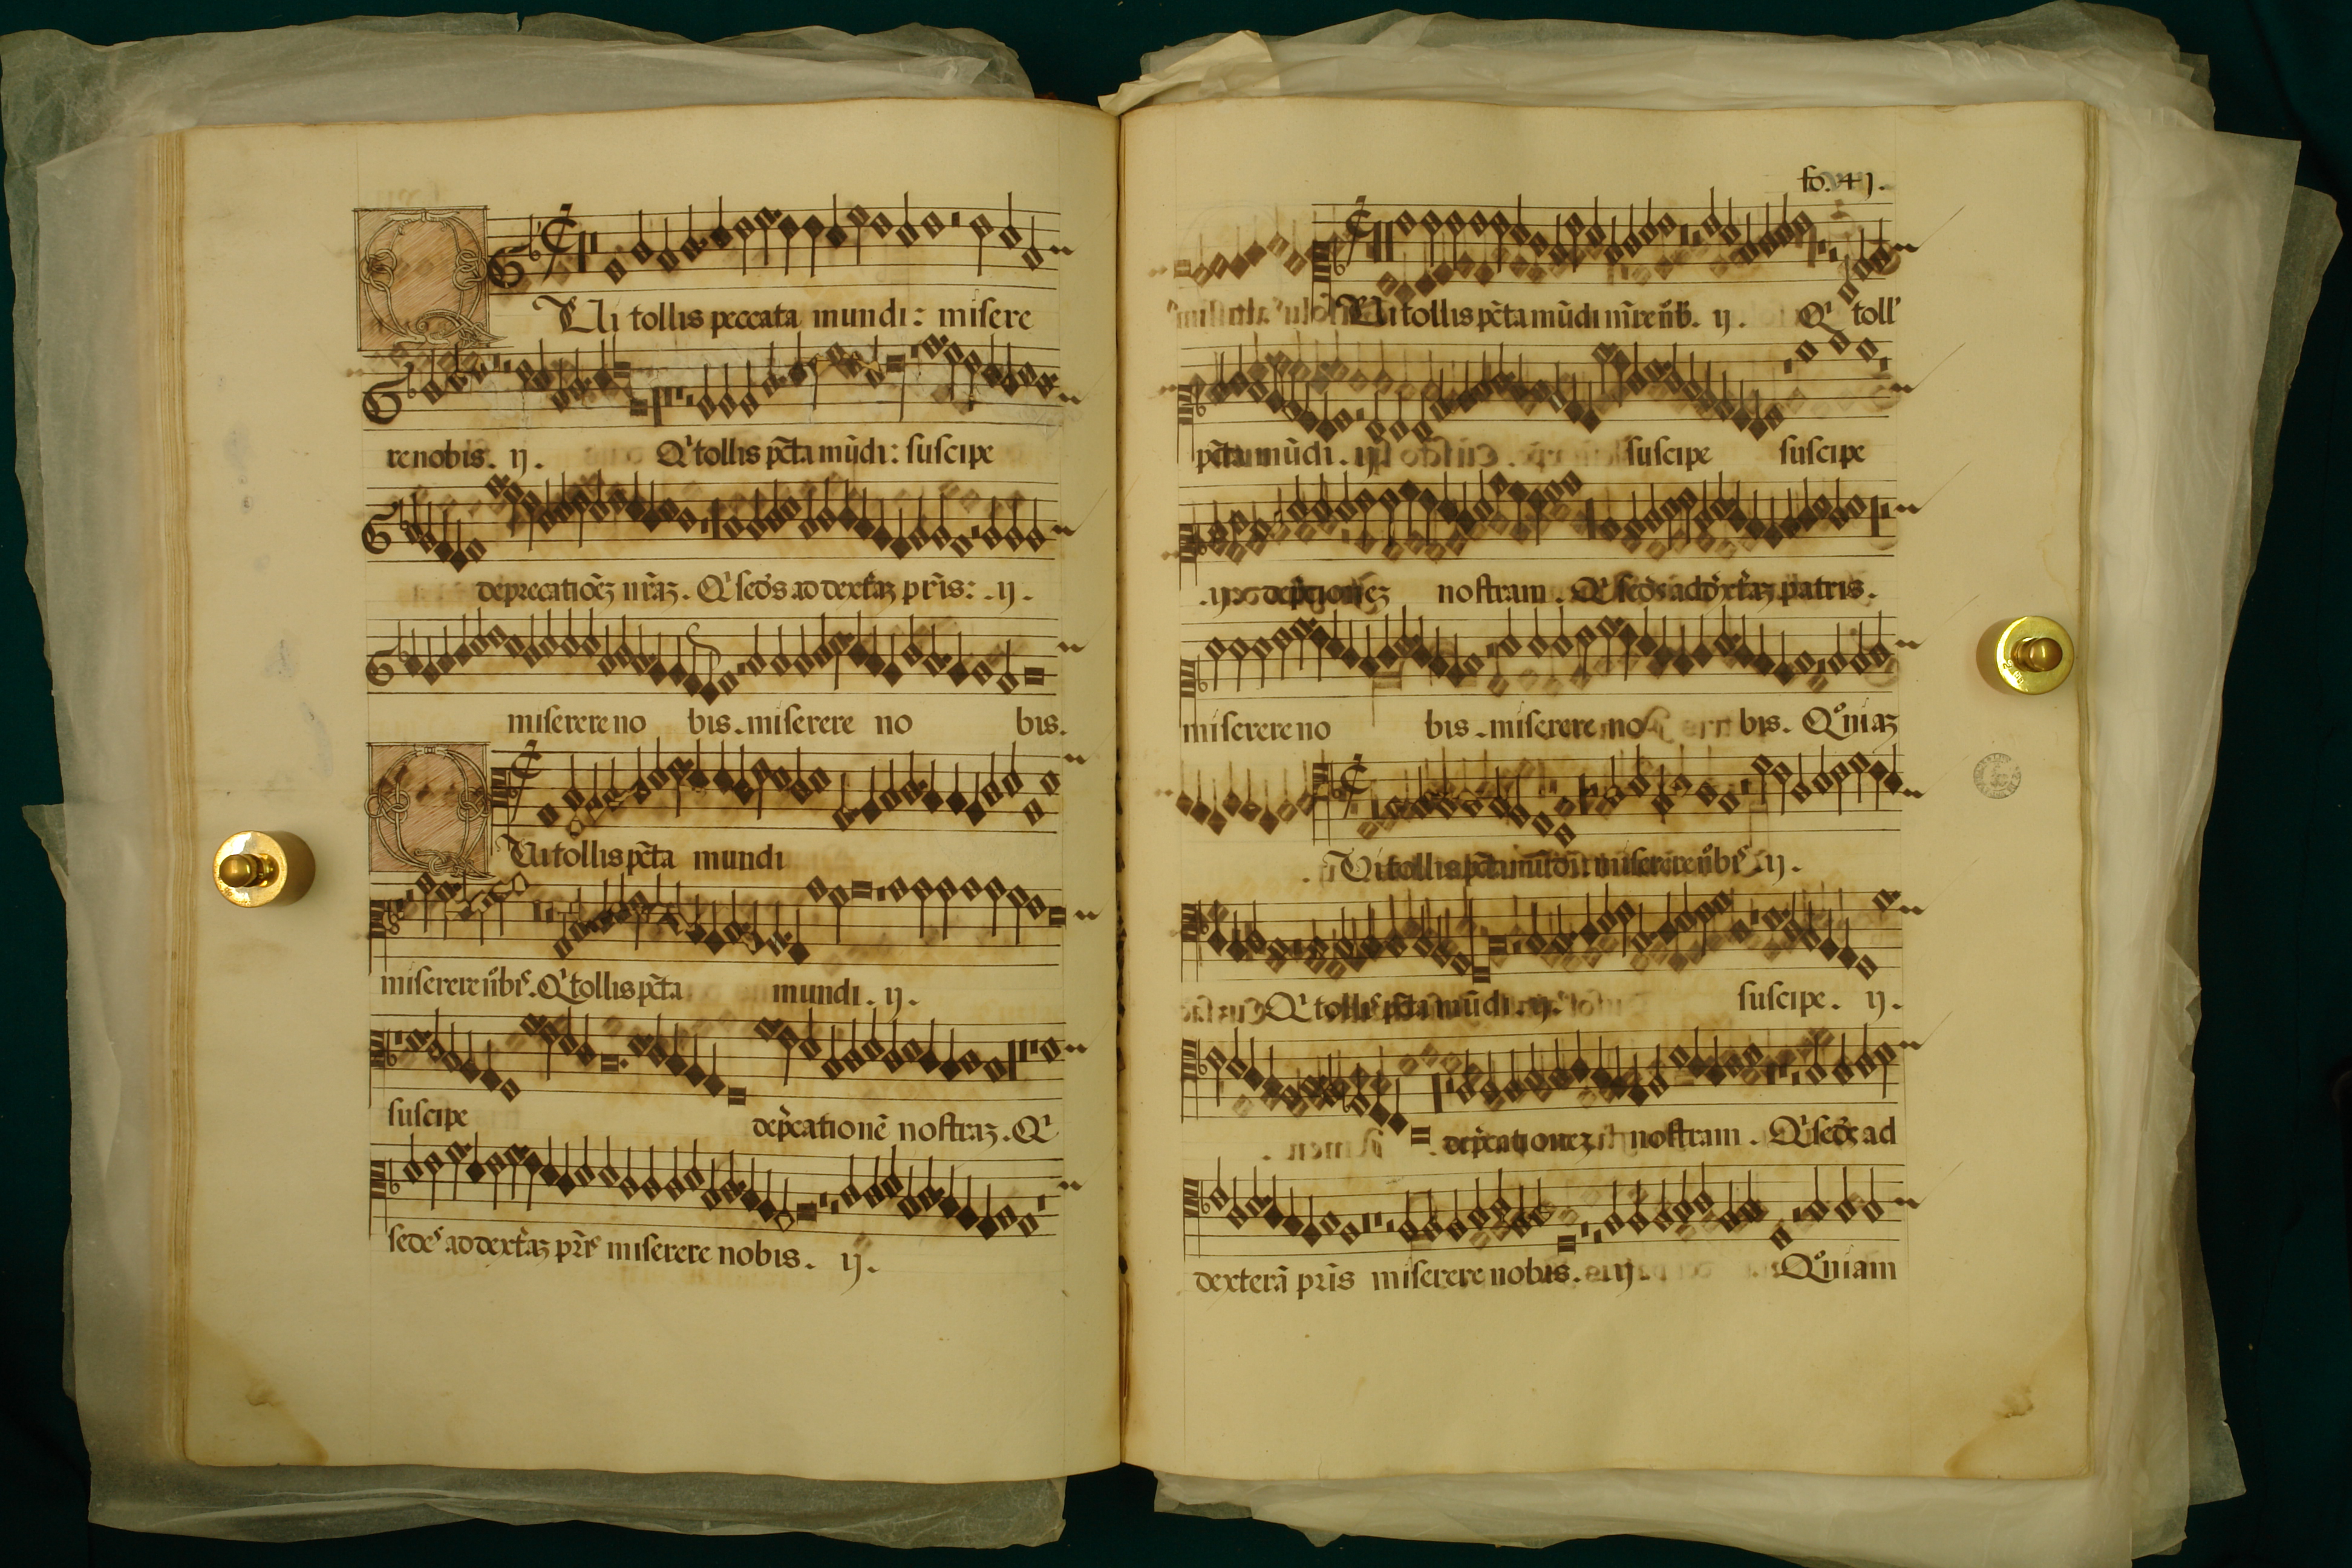 QUi tollis peccata mundi: misere
re nobis. ij. Q' tollis pc̃ta mũdi: suscipe
deprecatiõeʒ nr̃aʒ. Q' sedẽs ad dextẽraʒ pr̃is: .ij.
miserere no bis. miserere no bis.
QUi tollis pc̃ta mundi
miserere nobis. Q' tollis pc̃ta mundi. ij.
suscipe dep̃catione nostraʒ. Q'
sedes ad dextẽraʒ pr̃is miserere nobis. ij.
fo. 41.
Ui tollis pc̃ta mũdi ij. Q' toll'
pc̃ta mũdi. ij suscipe suscipe
.ij. nostram. Q' sedẽs ad dextẽraʒ patris.
miserere no bis. miserere no bis. Qoniaʒ
Ui tollis pc̃ta miserere nobis ij.
Q' tollis pc̃ta mũdi. ij. suscipe. ij.
dep̃cationeʒ nostram. Q' sedẽs ad
dexterã pr̃is miserere nobis. ij. Qoniam